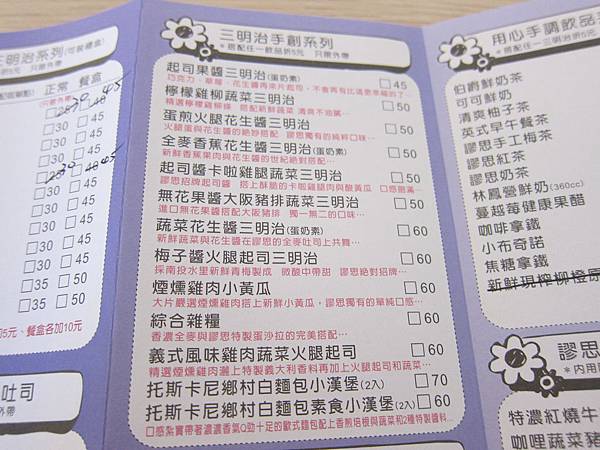 三明治系列(可裝禮盒)
正常 餐盒
□30 □45
□30 □45
□30 □45
□30 □45
□30 □45
□35 □50
□35 □50
餐盒各加10元
吐司
三明治手創系列
*搭配任一飲品折5元 只限外帶
起司果醬三明治(蛋奶素) □45
檸檬雞柳蔬菜三明治 □50
精選檸檬雞柳條 搭配新鮮蔬菜 清爽不油膩…
蛋煎火腿花生三明治 □50
火腿蛋與花生醬的絕妙搭配 謬思獨有的純粹口味…
全麥香蕉花生三明治(蛋奶素) □50
新鮮香蕉果肉與花生醬的世紀絕對搭配…
起司醬卡啦雞腿蔬菜三明治 □60
謬思招牌起司醬 搭上酥脆的卡啦雞腿肉與酸黃瓜 口感飽滿…
無花果醬大阪豬排蔬菜三明治 □60
進口無花果醬搭配大阪豬排 獨一無二的口味…
蔬菜花生醬三明治(蛋奶素) □60
新鮮蔬菜與花生醬在謬思的全麥吐司上共舞…
梅子醬火腿起司三明治 □60
採南投水里新鮮青梅製成 微酸中帶甜 謬思絕對招牌…
煙燻雞肉小黃瓜 □60
大片嚴選煙燻雞肉搭上新鮮小黃瓜，謬思獨有的單純口感…
綜合雜糧 □60
香濃全麥與謬思特製蛋沙拉的完美搭配…
義式風味雞肉蔬菜火腿起司 □60
精選煙燻雞肉灑上特製義大利香料再加上火腿起司和蔬菜…
托斯卡尼鄉村白麵包小漢堡(2入) □70
托斯卡尼鄉村白麵包素食小漢堡(2入) □60
口感紮實帶著濃濃香氣Q勁十足的歐式麵包配上香煎培根與蔬菜和2種特製醬料…
用心手調飲品
*搭配任一三明治折5元
伯爵鮮奶茶
可可鮮奶
清爽柚子茶
英式早午餐茶
謬思手工梅茶
謬思紅茶
謬思奶茶
林鳳營鮮奶(360cc)
蔓越莓健康果醋
咖啡拿鐵
小布奇諾
焦糖拿鐵
新鮮現榨柳橙原
謬思
*內用
特濃紅燒牛
咖哩蔬菜豬